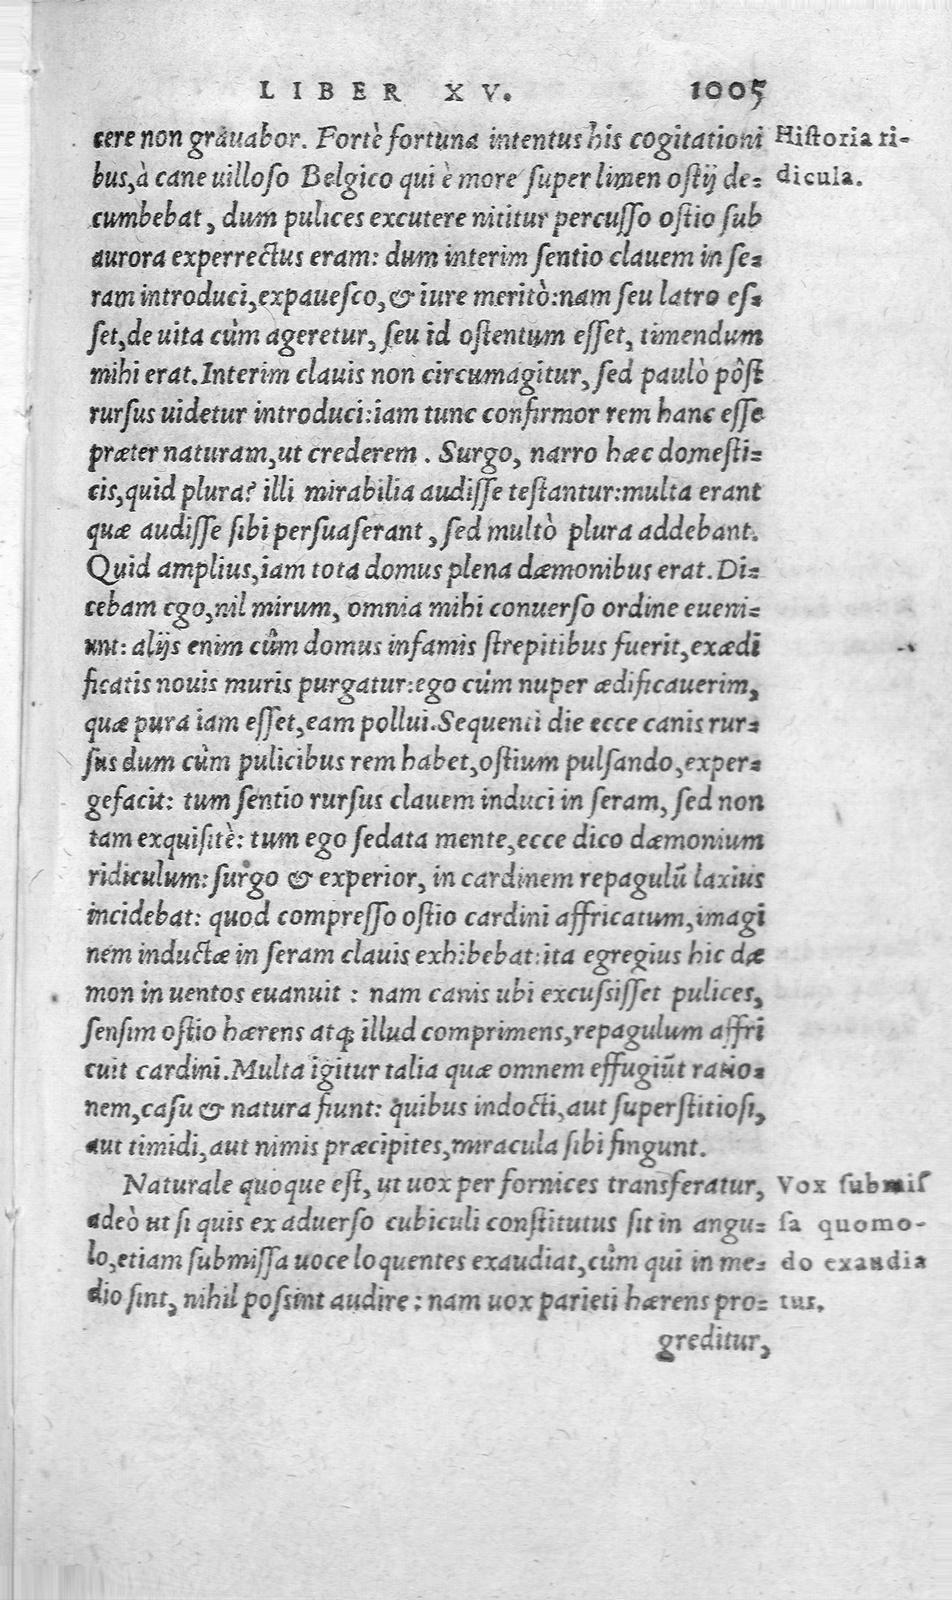 LIBER XV. 1005
cere non grauabor. Fortè fortuna intentus his cogitationi
Historia ri-
bus, à cane uilloso Belgico qui è more super limen ostij de-
dicula.
cumbebat, dum pulices excutere nititur percusso ostio sub
aurora experrectus eram: dum interim sentio clauem in se-
ram introduci, expauesco, & iure meritò: nam seu latro es-
set, de uita cùm ageretur, seu id ostentum esset, timendum
mihi erat. Interim clauis non circumagitur, sed paulò pôst
rursus uidetur introduci: iam tunc confirmor rem hanc esse
præter naturam, ut crederem. Surgo, narro hæc domesti-
cis, quid plura? illi mirabilia audisse testantur: multa erant
quæ audisse sibi persuaserant, sed multò plura addebant.
Quid amplius, iam tota domus plena dæmonibus erat. Di-
cebam ego, nil mirum, omnia mihi conuerso ordine eueni-
unt: alijs enim cûm domus infamis strepitibus fuerit, exædi
ficatis nouis muris purgatur: ego cùm nuper ædificauerim,
quæ pura iam esset, eam pollui. Sequenti die ecce canis rur-
sus dum cùm pulicibus rem habet, ostium pulsando, exper-
gefacit: tum sentio rursus clauem induci in seram, sed non
tam exquisitè: tum ego sedata mente, ecce dico dæmonium
ridiculum: surgo & experior, in cardinem repagulũ laxius
incidebat: quod compresso ostio cardini affricatum, imagi
nem inductæ in seram clauis exhibebat: ita egregius hic dæ
mon in uentos euanuit: nam canis ubi excussisset pulices,
sensim ostio hærens atq; illud comprimens, repagulum affri
cuit cardini. Multa igitur talia quæ omnem effugiũt ratio-
nem, casu & natura fiunt: quibus indocti, aut superstitiosi,
aut timidi, aut nimis præcipites, miracula sibi fingunt.
Naturale quoque est, ut uox per fornices transferatur,
Vox submis
adeò ut si quis ex aduerso cubiculi constitutus sit in angu-
sa quomo-
lo, etiam submissa uoce loquentes exaudiat, cûm qui in me-
do exaudia
dio sint, nihil possint audire: nam uox parieti hærens pro-
tur.
greditur,